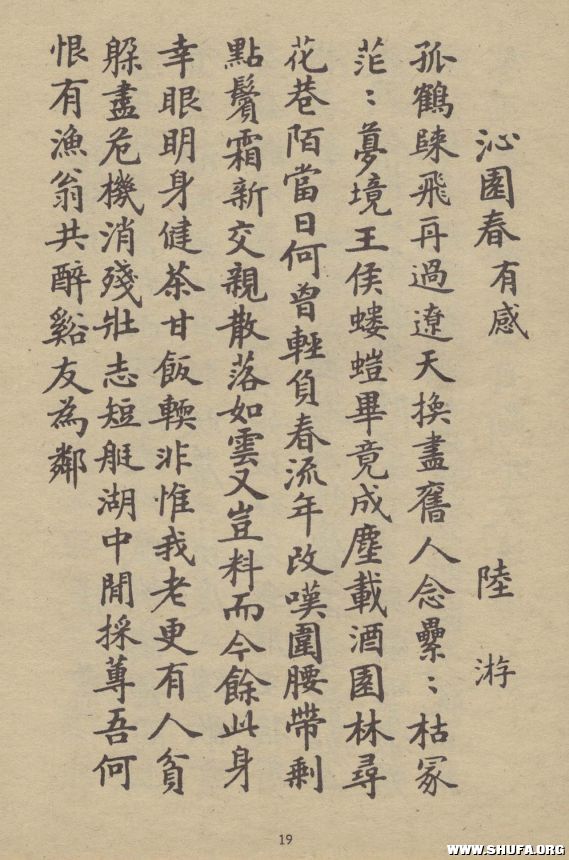 沁園春 有感 陸游
孤鶴歸飛再過遼天換盡舊人念纍〻枯冢
茫〻夢境王侯螻螘畢竟成塵載酒園林尋
花巷陌當日何曾輕負春流年改嘆圍腰帶剩
點鬢霜新交親散落如雲又豈料而今餘此身
幸眼明身健茶甘飯輭非惟我老更有人貧
躱盡危機消殘壯志短艇湖中閒採蓴吾何
恨有漁翁共醉谿友為鄰
19
WWW.SHUFA.ORG